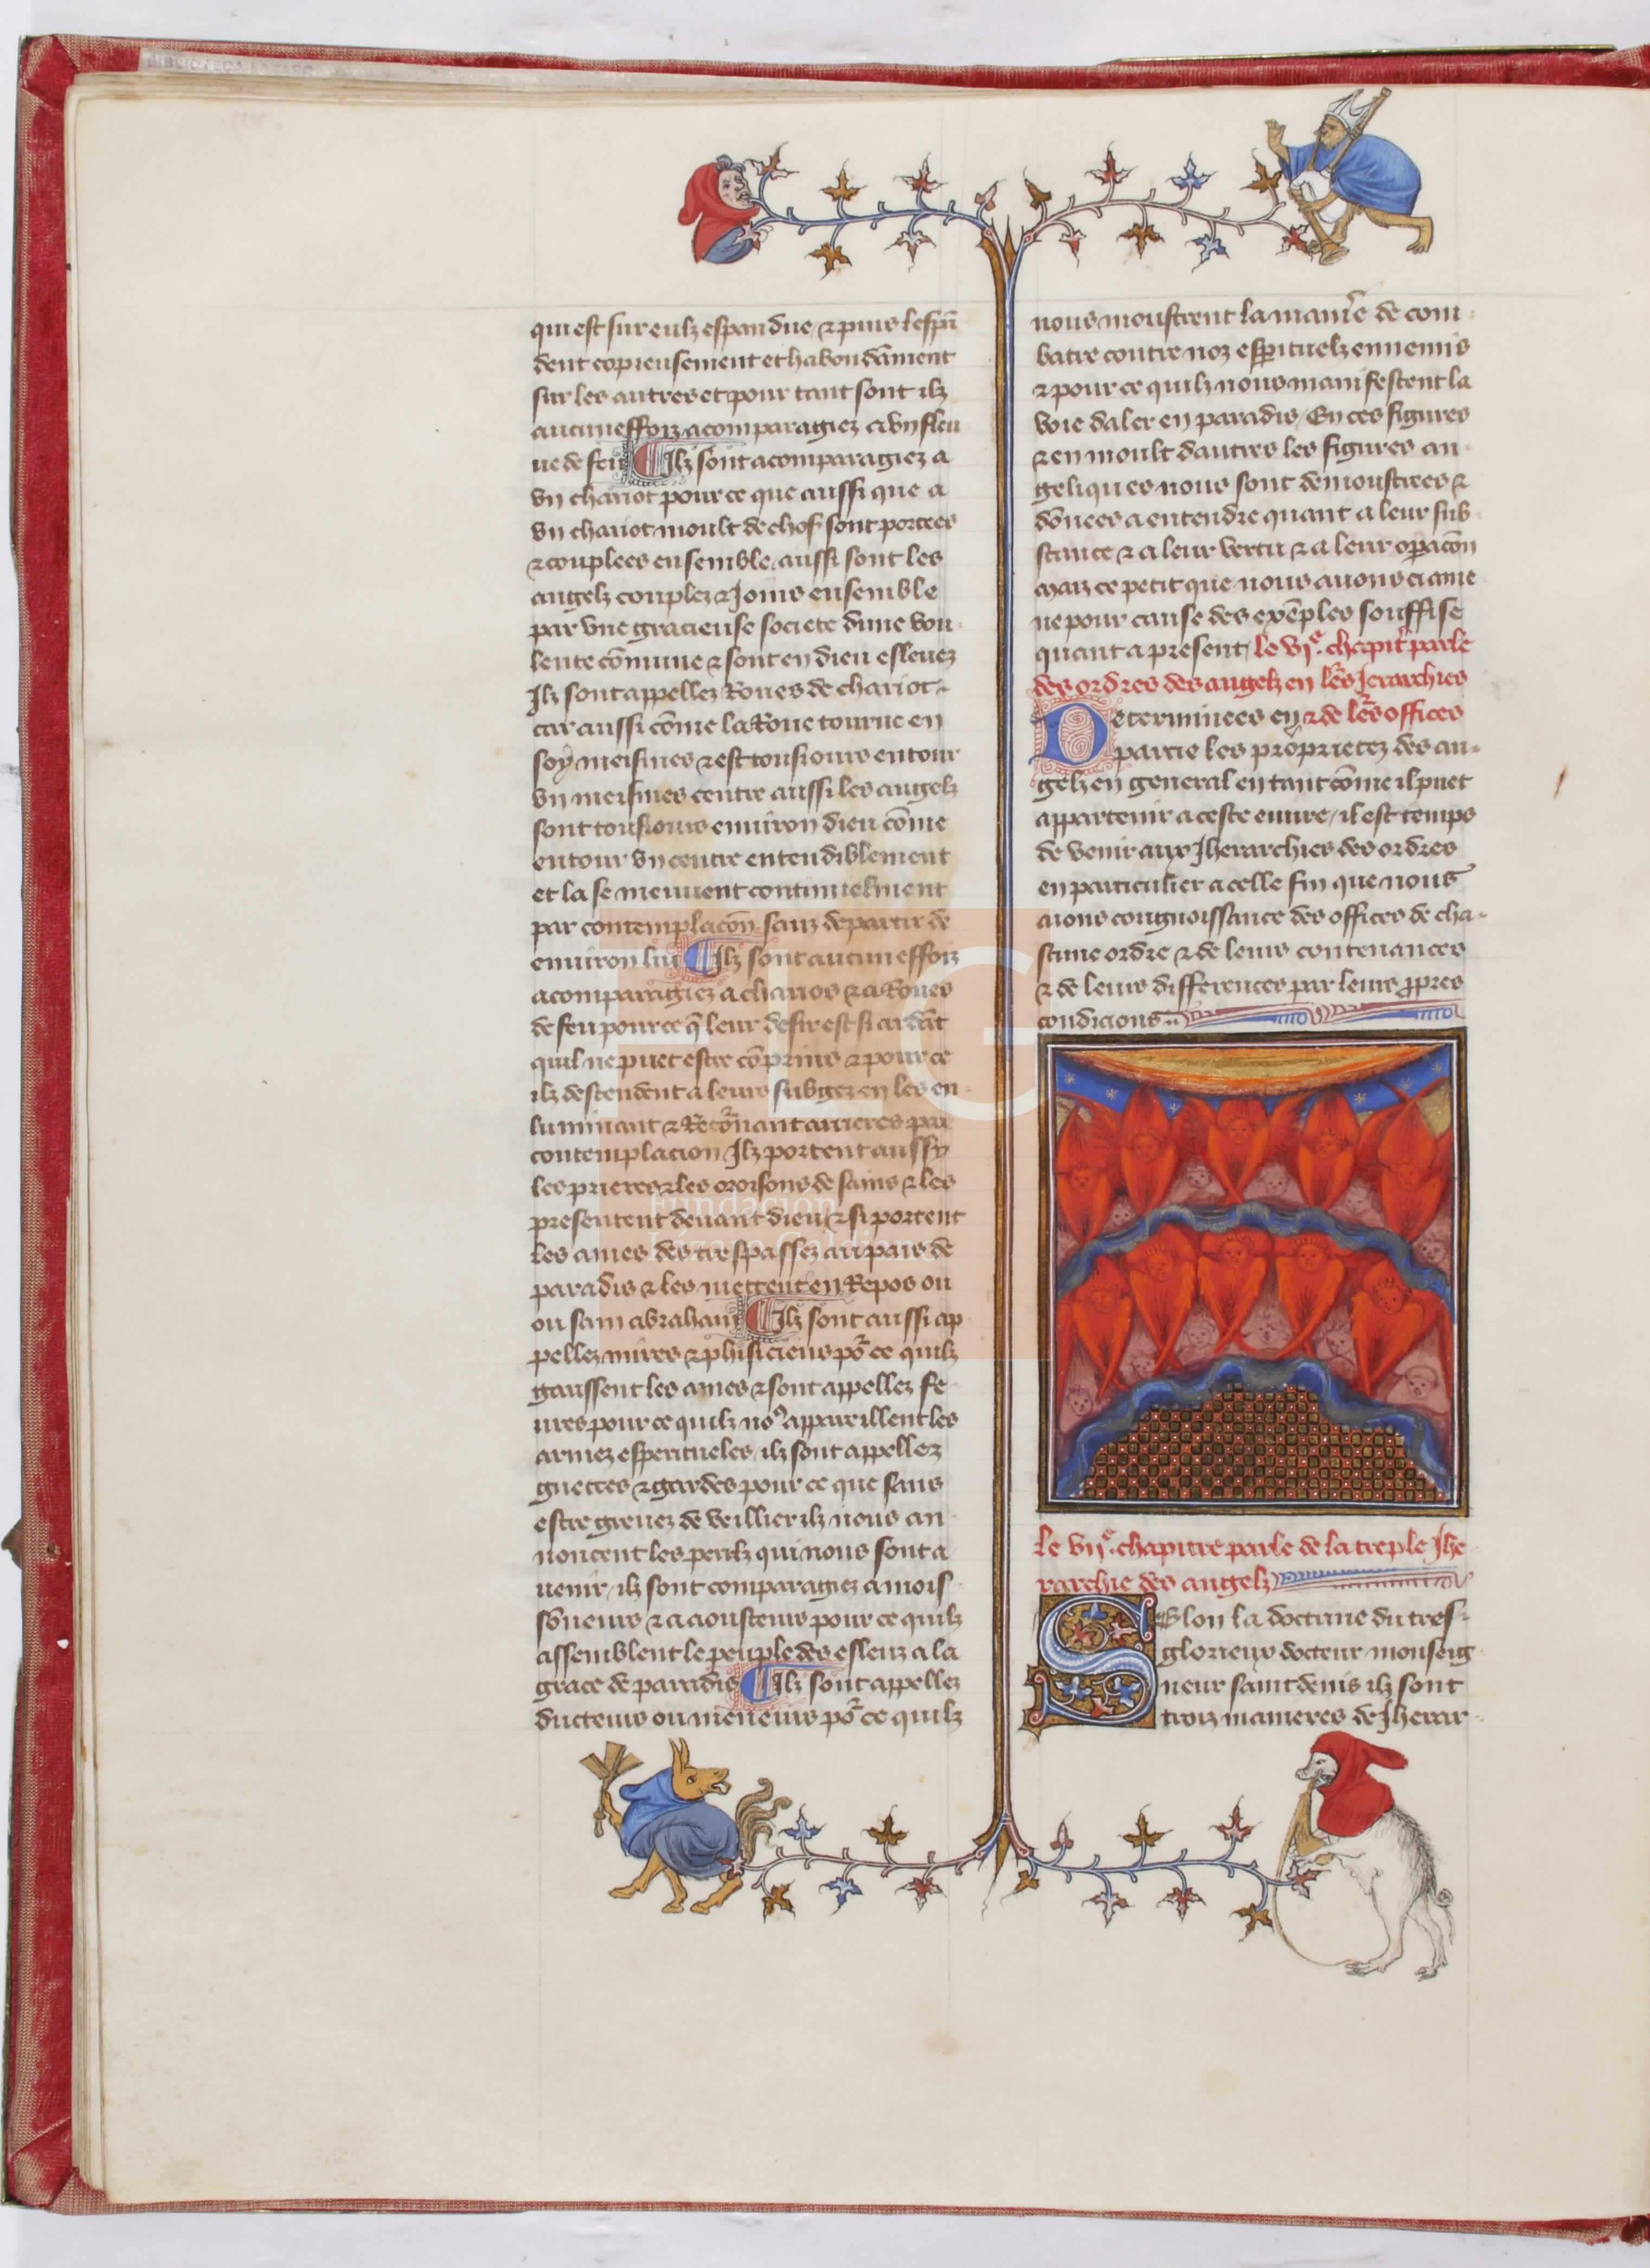 qui est sur eulz espandue ⁊ puis lespā
dent copieusement et habondāment
sur les autres et pour tant sont ilz
aucuneffoiz acomparagiez a vn fleu
ue de feu ¶ Ilz sont acomparagiez a
vn chariot pour ce que aussi que a
vn chariot moult de chos' sont portees
⁊ couplees ensemble aussi sont les
angelz couplez ⁊ Joins ensemble
par vne gracieuse societe dune vou
lente cōmune ⁊ sont en dieu esleuez
Ilz sont appellez Roues de chariot
car aussi cōme la Roue tourne en
soy meismes ⁊ est tousiours entour
vn meismes centre aussi les angelz
sont tousiours enuiron dieu cōme
entour vn centre entendiblement
et la se meuuent continuelment
par contemplacōn sanz departir de
enuiron lui ¶ Ilz sont aucuneffoiz
acomparagiez a charios ⁊ a Roues
de feu pour ce q̄ leur desir est si ardāt
quil ne puet estre cōprins ⁊ pour ce
ilz descendent a leurs subgez en les en
luminant ⁊ Retōrnant arrieres par
contemplacion Ilz portent aussy
les prieres ⁊ les oroisons de sains ⁊ les
presentent deuant dieu ⁊ si portent
les ames des trespassez au pais de
paradis ⁊ les mettent en Repos ou
ou sain abraham ¶ Ilz sont aussi ap
pellez mires ⁊ phisiciens pōr ce quilz
garissent les ames ⁊ sont appellez fe
ures pour ce quilz noꝰ apparillent les
armez esperitueles, ilz sont appellez
guettes ⁊ gardes pour ce que sans
estre greuez de veillier ilz nous an
noncent les perilz qui nous sont a
uenir, ilz sont comparagiez a mois
sōneurs ⁊ a aousteurs pour ce quilz
assemblent le peuple des esleuz a la
grace de paradis ¶ Ilz sont appellez
ducteurs ou meneurs pōr ce quilz
nous moustrent la manr̄e de com
batre contre noz esperituelz ennemis
⁊ pour ce quilz nous manifestent la
voie daler en paradis, En ces figures
⁊ en moult dautres les figures an
geliques nous sont demoustrees ⁊
dōnees a entendre quant a leur sub
stance ⁊ a leur vertu ⁊ a leur opacōn
maiz ce petit que nous auons ci ame
ne pour cause des exēples souffise
quant a present, le vjᵉ. chapitr̄ parle
des ordres des angelz en lēs Jerarchies
Determinees en ⁊ de lēs offices
partie les proprietez des an
gelz en general en tant cōme il puet
appartenir a ceste euure, il est temps
de venir aux Jherarchies des ordres
en particulier a celle fin que nous
aions congnoissance des offices de cha
scune ordre ⁊ de leurs contenances
⁊ de leurs differences par leurs ꝓpres
condicions
le vijᵉ. chapitre parle de la treple Jhe
rarchie des angelz
Selon la doctrine du tres
glorieux docteur monseig
neur saint denis ilz sont
troiz manieres de Jherar
FLG
Fundación
Lázaro Galdiano